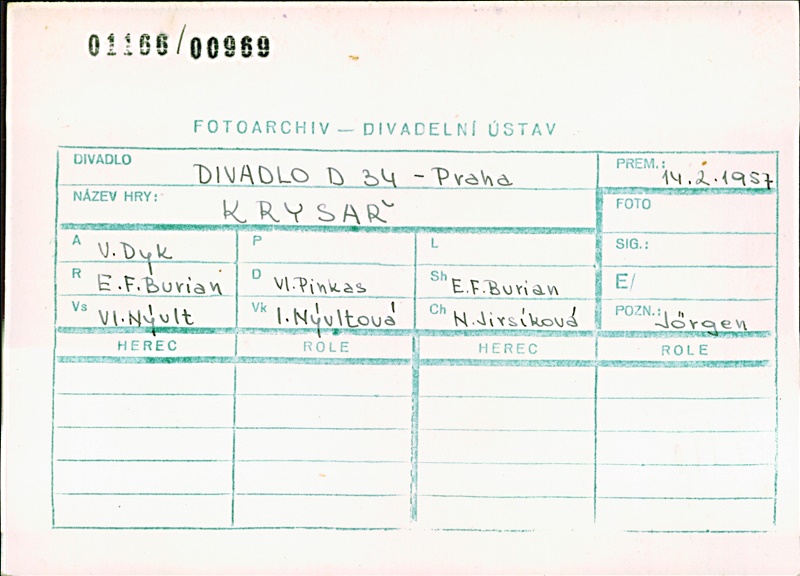 01166/00969
FOTOARCHIV — DIVADELNÍ ÚSTAV
DIVADLO DIVADLO D 34 - Praha PREM.: 14.2.1957
NÁZEV HRY: KRYSAŘ FOTO
A V. Dyk P L SIG.:
R E.F.Burian D Vl.Pinkas Sh E.F.Burian E/
Vs Vl.Nývlt Vk I.Nývltová Ch N.Jirsíková POZN.: Jörgen
HEREC ROLE HEREC ROLE